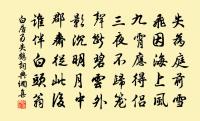 失为庭前雪
飞因海上风
九霄应得侣
三夜不归笼
声断碧云外
影沉明月中
郡斋从此后
谁伴白头翁
白居易失鹤词典网喜